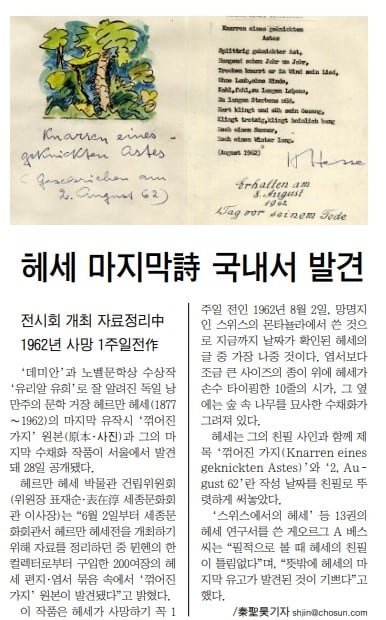 Knarren eines
geknickten Astes
(Geschrieben am
2. August 62)
Knarren eines geknickten
Astes
Splittrig geknickter Ast,
Hangend schon Jahr um Jahr,
Trocken knarrt er im Wind sein Lied,
Ohne Laub, ohne Rinde,
Kahl, fahl, zu langen Lebens,
Zu langen Sterbens müd.
Hart klingt und zäh sein Gesang,
Klingt trotzig, klingt heimlich bang
Noch einen Sommer,
Noch einen Winter lang.
(August 1962)
H Hesse
Erhalten am
8. August
1962
Tag vor seinem Tode
헤세 마지막詩 국내서 발견
전시회 개최 자료정리中
1962년 사망 1주일전作
‘데미안’과 노벨문학상 수상작
‘유리알 유희’로 잘 알려진 독일 낭
만주의 문학 거장 헤르만 헤세(1877
～1962)의 마지막 유작시 ‘꺾어진
가지’ 원본(原本·사진)과 그의 마
지막 수채화 작품이 서울에서 발견
돼 28일 공개됐다.
헤르만 헤세 박물관 건립위원회
(위원장 표재순·表在淳 세종문화회
관 이사장)는 “6월 2일부터 세종문
화회관서 헤르만 헤세전을 개최하기
위해 자료를 정리하던 중 뮌헨의 한
컬렉터로부터 구입한 200여장의 헤
세 편지·엽서 묶음 속에서 ‘꺾어진
가지’ 원본이 발견됐다”고 밝혔다.
이 작품은 헤세가 사망하기 꼭 1
주일 전인 1962년 8월 2일, 망명지
인 스위스의 몬타뇰라에서 쓴 것으
로 지금까지 날짜가 확인된 헤세의
글 중 가장 나중 것이다. 엽서보다
조금 큰 사이즈의 종이 위에 헤세가
손수 타이핑한 10줄의 시가, 그 옆
에는 숲 속 나무를 묘사한 수채화가
그려져 있다.
헤세는 그의 친필 사인과 함께 제
목 ‘꺾어진 가지(Knarren eines
geknickten Astes)’와 ‘2, Au-
gust 62’란 작성 날짜를 친필로 뚜
렷하게 써놓았다.
‘스위스에서의 헤세’ 등 13권의
헤세 연구서를 쓴 게오르그 A 베스
씨는 “필적으로 볼 때 헤세의 친필
이 틀림없다”며, “뜻밖에 헤세의 마
지막 유고가 발견된 것이 기쁘다”고
했다.
/秦聖昊기자 shjin@chosun.com